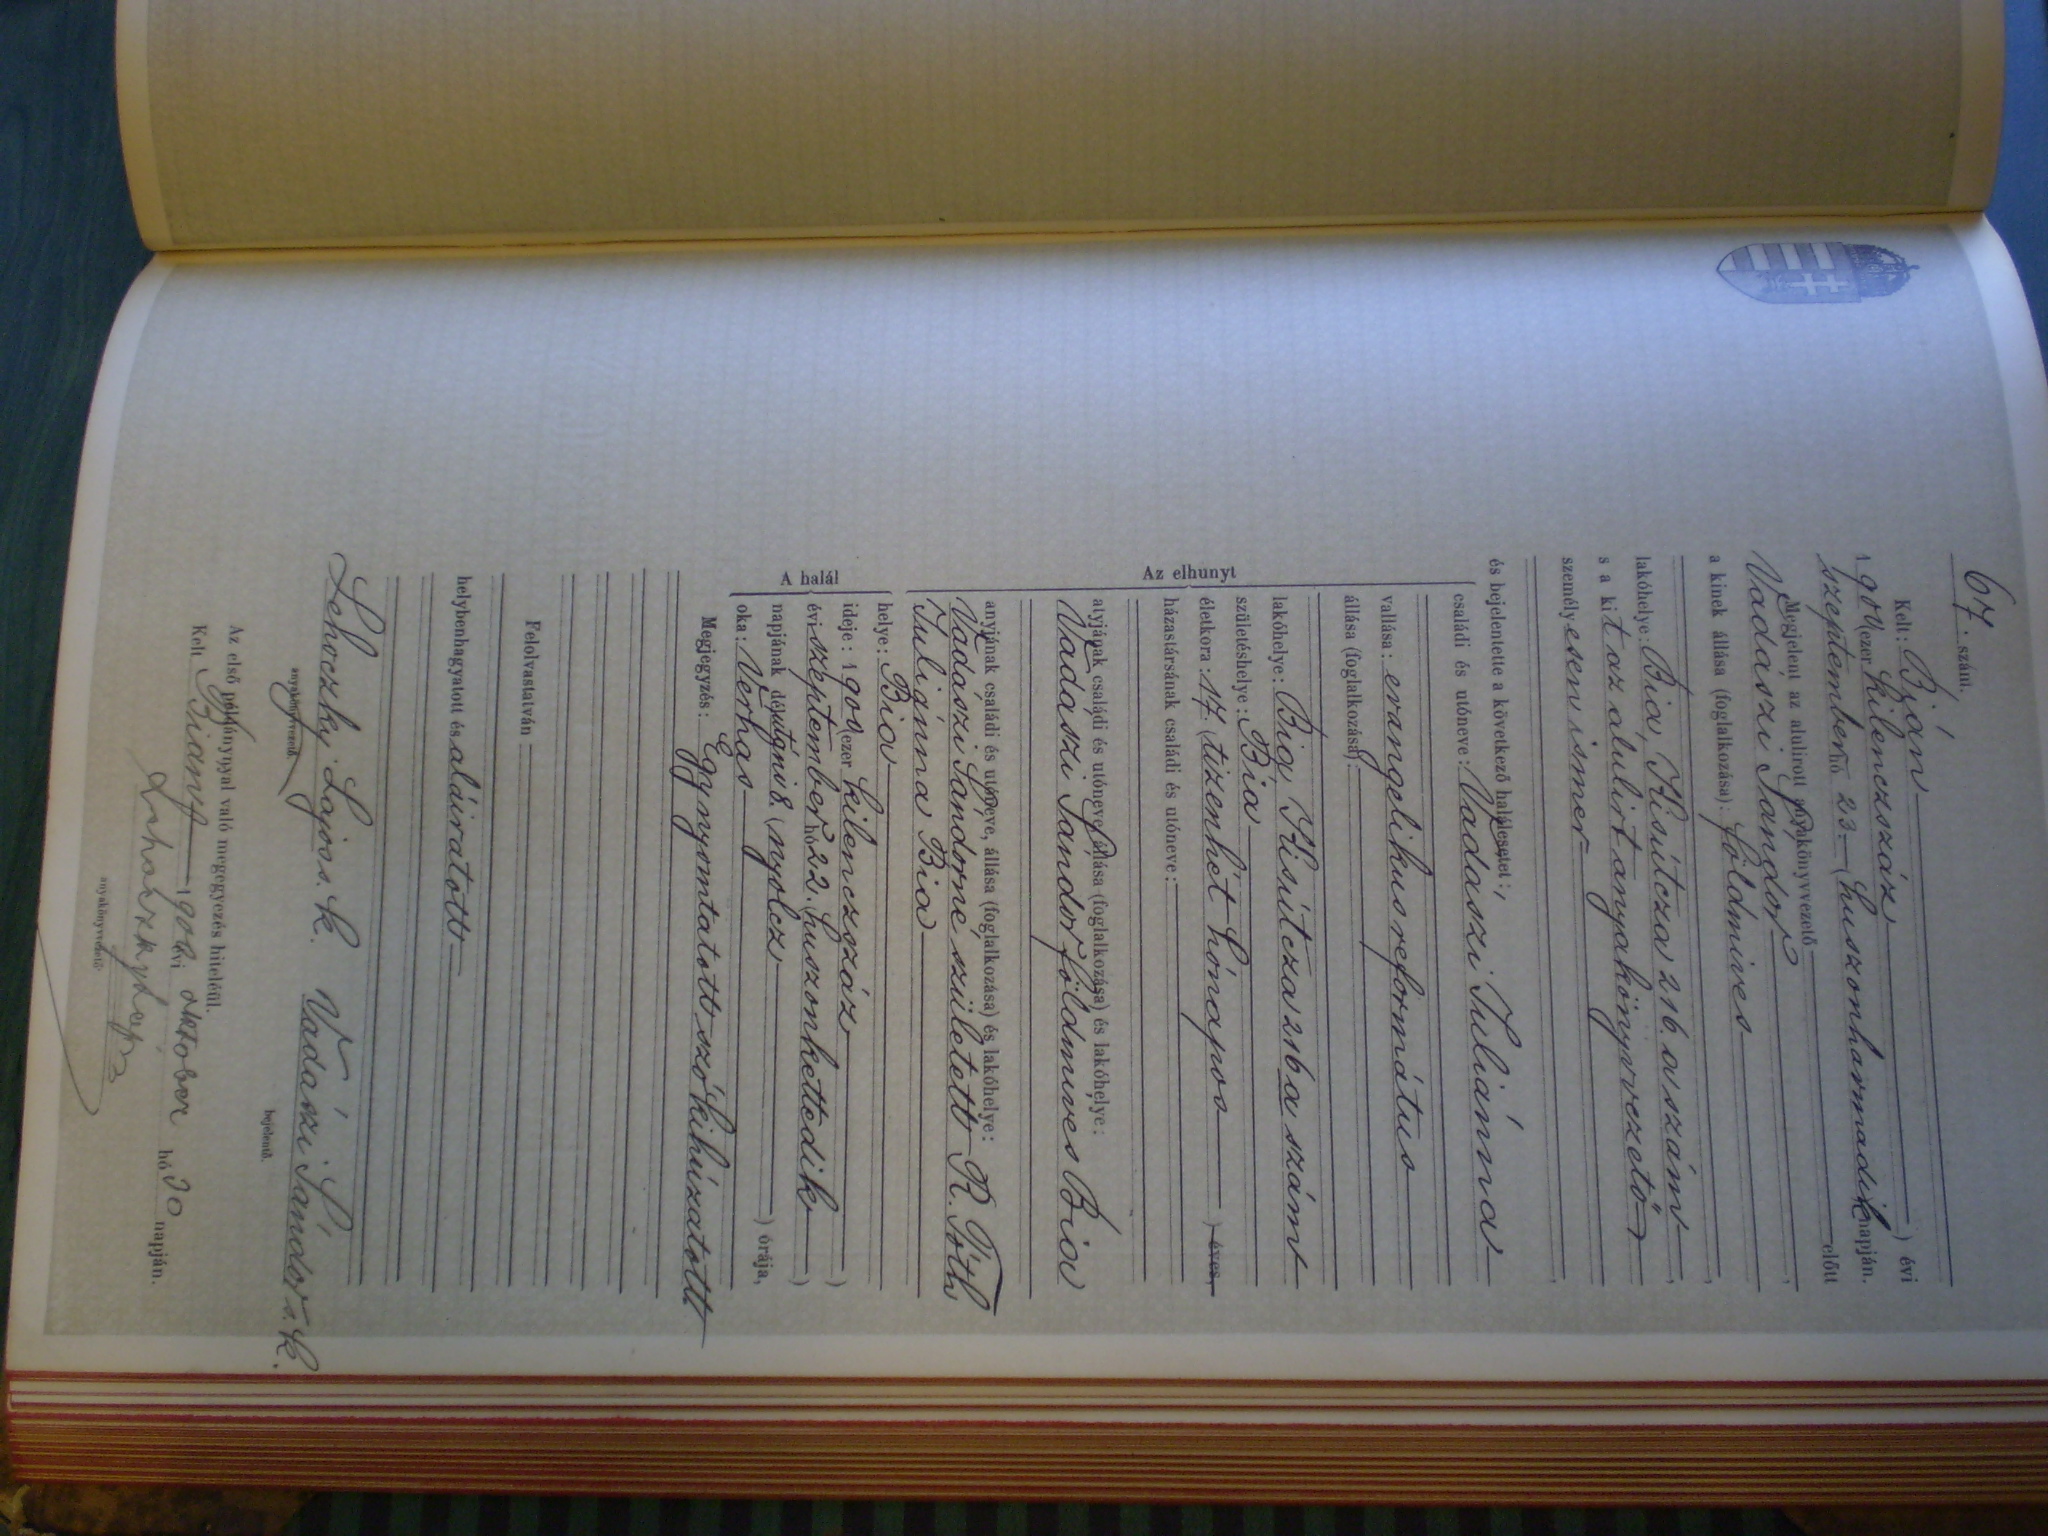 67. szám.
Kelt: Bián
1900 (ezer kilenczszáz) évi
szeptember hó 23 (huszonharmadik) napján.
Megjelent az alulirott anyakönyvvezető előtt
Vadászi Sándor,
a kinek állása (foglalkozása): földmives
lakóhelye: Bia, Kisútcza 216. a szám,
s a kit az alulirt anyakönyvvezető
személyesen ismer
és bejelentette a következő halálesetet:
Az elhunyt
családi és utóneve: Vadászi Juliánna
vallása: evangelikus református
állása (foglalkozása):
lakóhelye: Bia, Kisútcza 216 a szám
születéshelye: Bia
életkora: 17 (tizenhét hónapos) éves,
házastársának családi és utóneve:
atyjának családi és utóneve, állása (foglalkozása) és lakóhelye:
Vadászi Sándor földmives Bia
anyjának családi és utóneve, állása (foglalkozása) és lakóhelye:
Vadászi Sándorné született R. Tóth
Juliánna Bia
A halál
helye: Bia
ideje: 1900 (ezer kilenczszáz)
évi szeptember hó 22. (huszonkettedik)
napjának délutáni 8. (nyolcz) órája,
oka: Vérhas
Megjegyzés: Egy nyomtatott szó kihúzatott
Felolvastatván
helybenhagyatott és aláiratott
Lehoczky Lajos s. k. Vadászi Sándor s. k.
anyakönyvvezető bejelentő.
Az első példánynyal való megegyezés hiteléül.
Kelt Bián, 1900 évi október hó 30 napján.
Lehoczky Lajos
anyakönyvvezető.